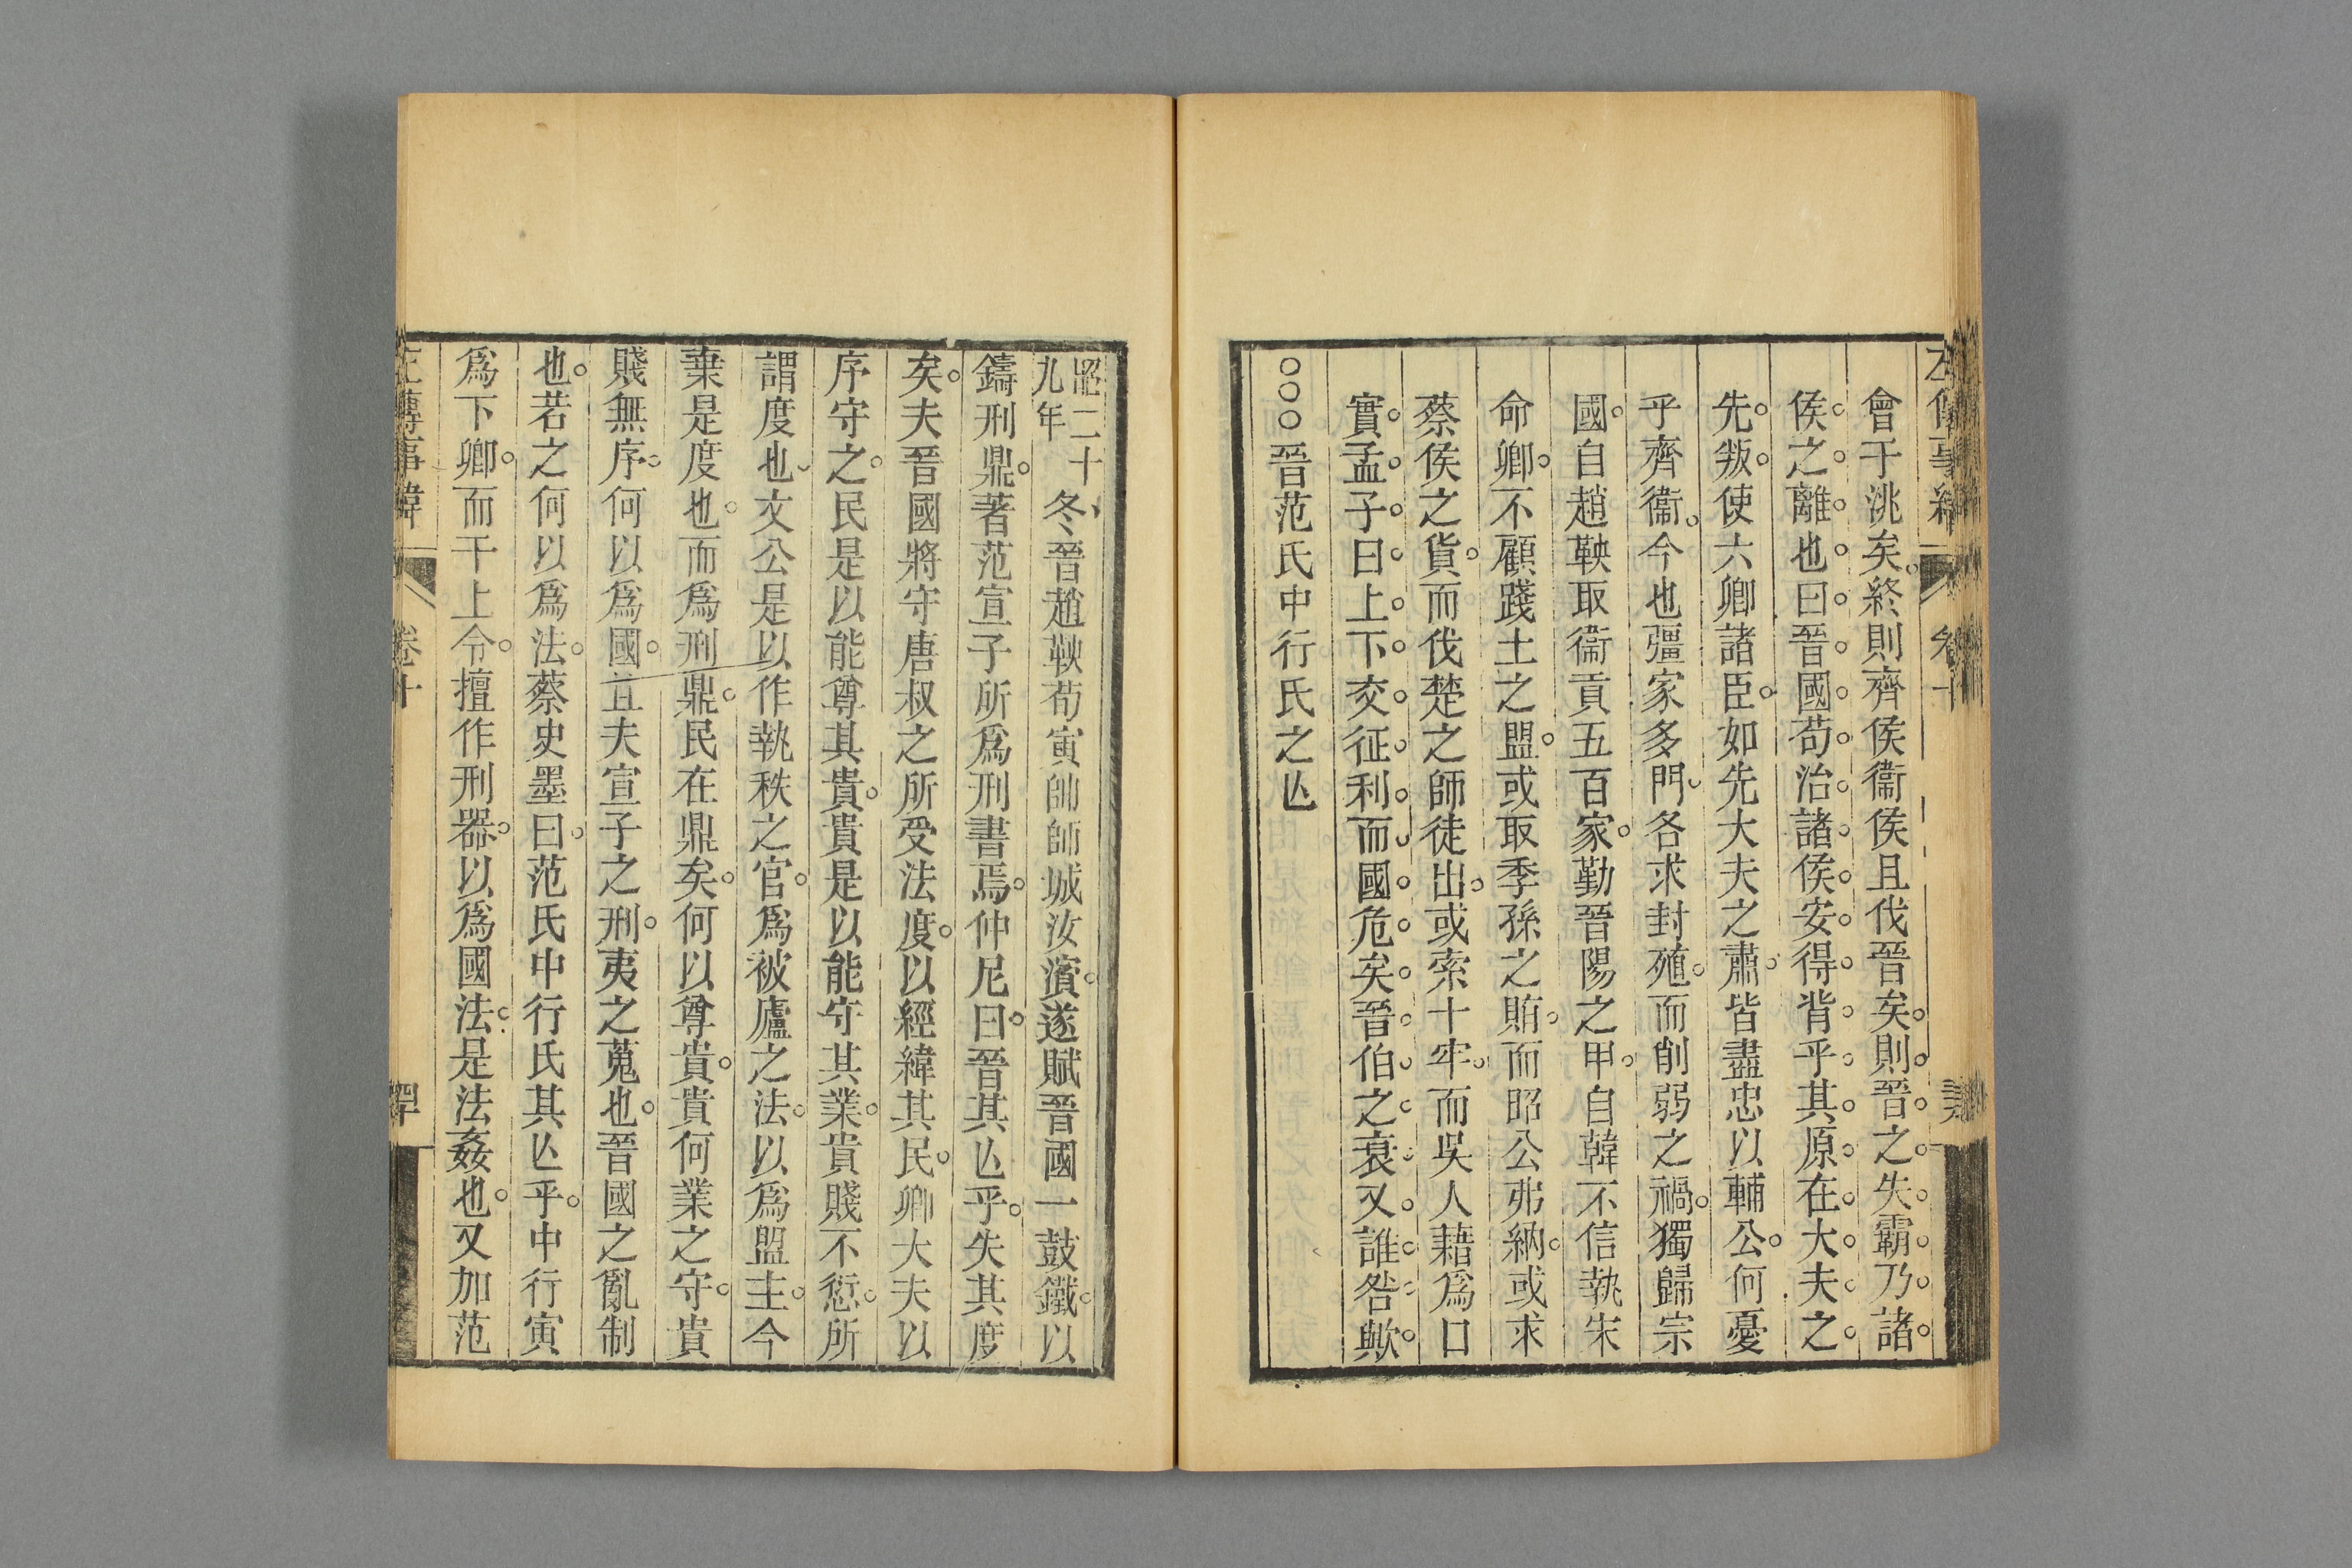 會于洮矣終則齊侯衞侯且伐晉矣則晉之失霸乃諸
侯之離也曰晉國苟治諸侯安得背乎其原在大夫之
先叛使六卿諸臣如先大夫之肅皆盡忠以輔公何憂
乎齊衞今也彊家多門各求封殖而削弱之禍獨歸宗
國自趙鞅取衞貢五百家勤晉陽之甲自韓不信執宋
命卿不顧踐土之盟或取季孫之賄而昭公弗納或求
蔡侯之貨而伐楚之師徒出或索十牢而吳人藉爲口
實孟子曰上下交征利而國危矣晉伯之衰又誰咎歟
○○○晉范氏中行氏之亾
昭二十九年冬晉趙鞅荀寅帥師城汝濱遂賦晉國一鼓鐵以
鑄刑鼎著范宣子所爲刑書焉仲尼曰晉其亾乎失其度
矣夫晉國將守唐叔之所受法度以經緯其民卿大夫以
序守之民是以能尊其貴貴是以能守其業貴賤不愆所
謂度也文公是以作執秩之官爲被廬之法以爲盟主今
棄是度也而爲刑鼎民在鼎矣何以尊貴貴何業之守貴
賤無序何以爲國且夫宣子之刑夷之蒐也晉國之亂制
也若之何以爲法蔡史墨曰范氏中行氏其亾乎中行寅
爲下卿而干上令擅作刑器以爲國法是法姦也又加范
左傳事緯 卷十